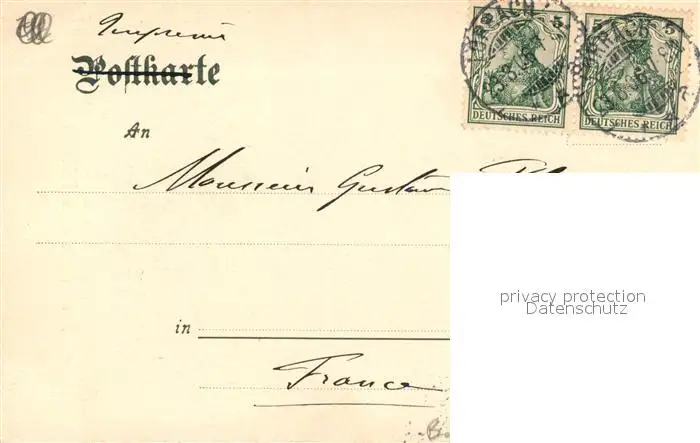 Imprimé
Postkarte
5 5
DEUTSCHES REICH DEUTSCHES REICH
An
Monsieur Gustave
privacy protection
Datenschutz
in
France